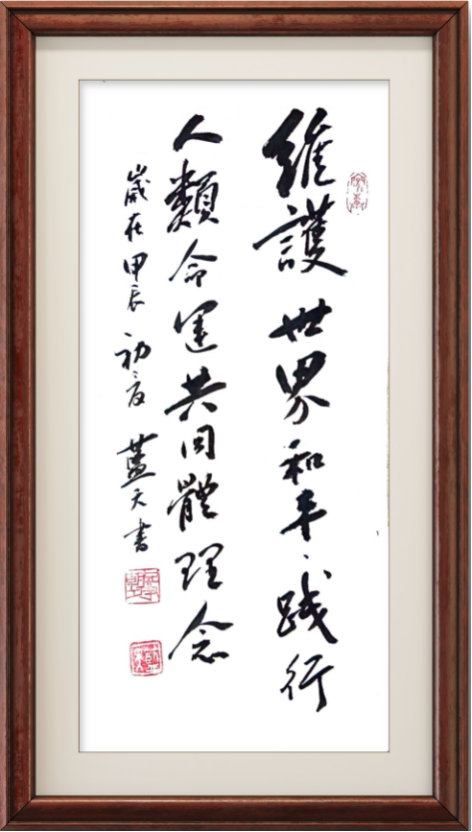 維護世界和平、践行
人類命運共同體理念
歲在甲辰初夏 藍天書